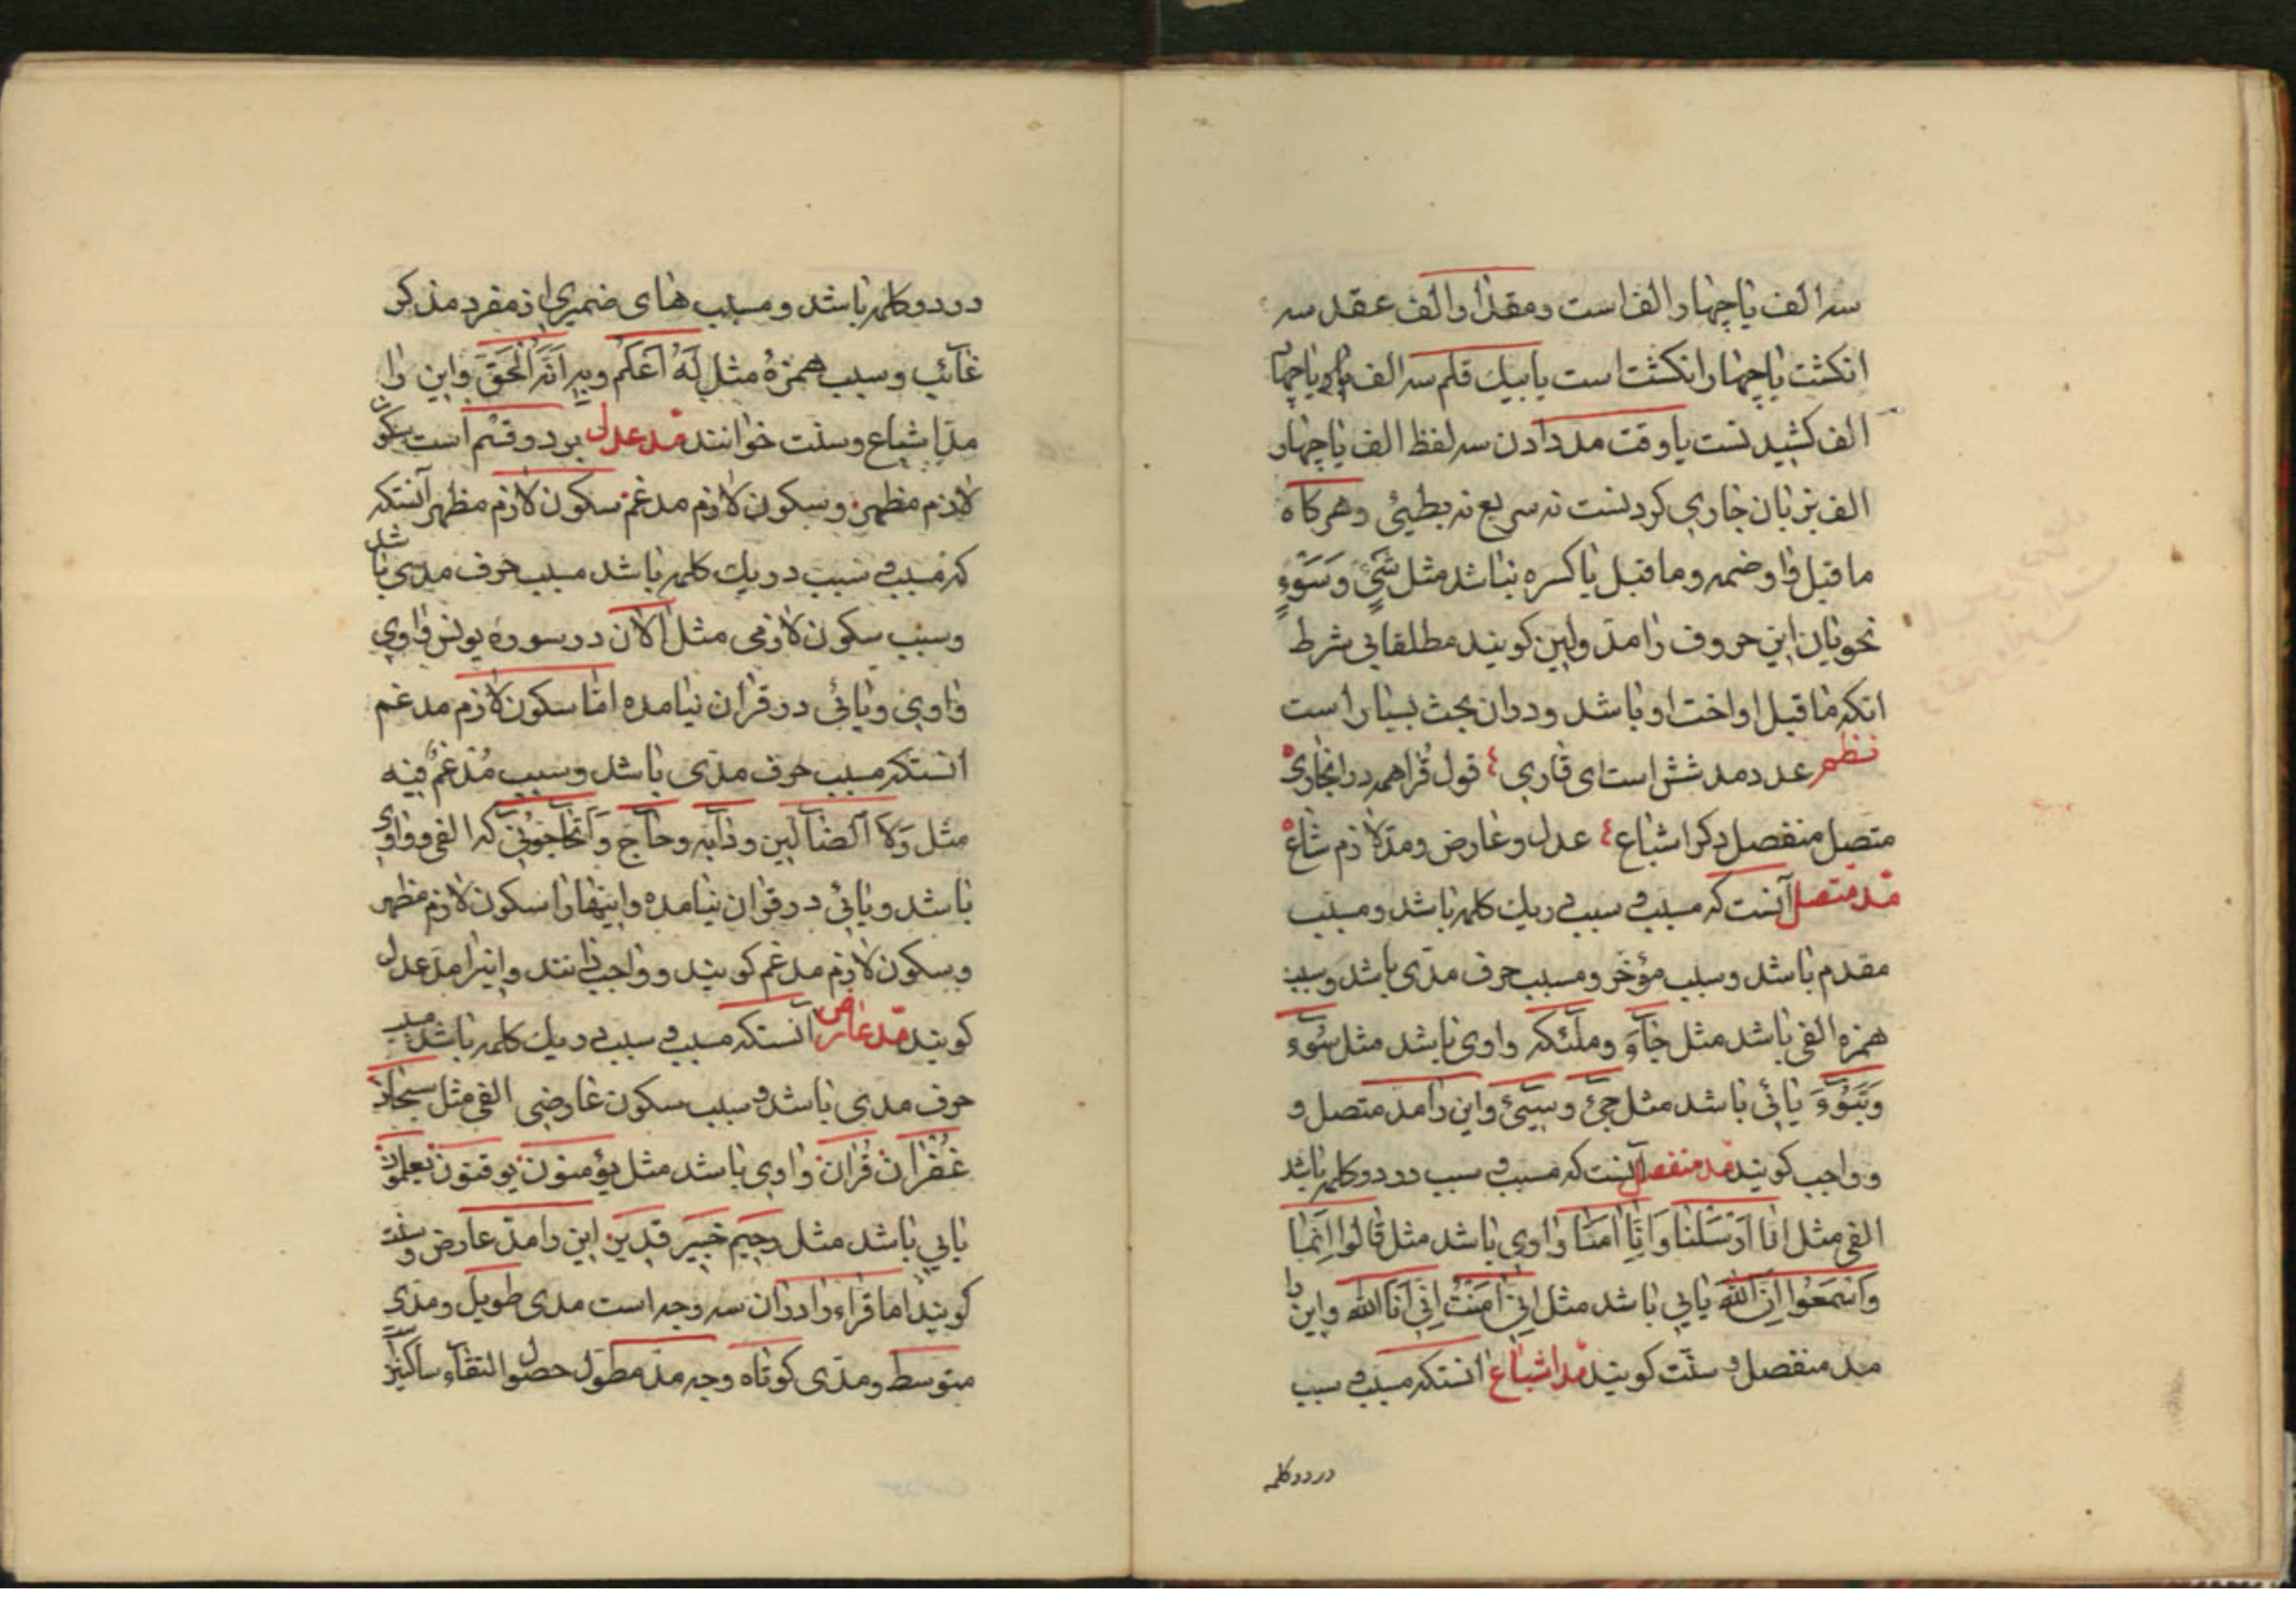 سه الف یا چهار الف است ومقدار الف عقد سه
انکشت یا چهار انکشت است یا بیك قلم سه الف یا چهار
الف کشیدنست یا وقت مد دادن سه لفظ الف یا چهار
الف بزبان جاری کردنست نه سریع نه بطیئی وهرکاه
ما قبل واو ضمه وما قبل یا کسره نباشد مثل شَیْءٍ وَسَوْءٍ
نحویان این حروف را مد ولین کویند مطلقا بی شرط
انکه ما قبل او اخت او باشد ودر ان بحث بسیار است
نظم عدد مد شش است ای قاری ٤ قول قُرا همه در انجاری
متصل منفصل دکر اشباع ٤ عدل وعارض ومد لازم شاع
مد متصل آنست که مسبب وسبب در یك کلمه باشد ومسبب
مقدم باشد وسبب مؤخر ومسبب حرف مدّی باشد وسبب
همزه الفی باشد مثل جآءَ وملٓئکه واوی باشد مثل سُوٓء
وَتَبُوٓءَ یائی باشد مثل جیٓء وسیٓئ واین را مد متصل و
و واجب کویند مد منفصل آنست که مسبب وسبب در دو کلمه باشد
الفی مثل انا اَرْسَلنا وَاِنَّا امَنَّا واوی باشد مثل قالُوا اِنَّمٰا
وَاسْمَعُوا اِنَّ اللّٰه یایی باشد مثل اِنّی امَنْتُ اِنّی اَنَا اللّٰه واین را
مد منفصل وسنّت کویند مد اشباع انستکه مسبب وسبب
در دو کلمه
در دو کلمه باشد ومسبب های ضمیری از مفرد مذکر
غائب وسبب همزهٔ مثل لَهُٓ اَعْلَم وبِهِٓ اَنَّهُ الْحَقّ واین را
مدّ اشباع وسنت خوانند مد عدل بر دو قسم است سکون
لازم مظهر وسکون لازم مدغم سکون لازم مظهر آنستکه
که مسبب وسبب در یك کلمه باشد مسبب حرف مدّی باشد
وسبب سکون لازمی مثل آلان در سوره یونس واوی
واوی ویائی در قران نیامده امّا سکون لازم مدغم
انستکه مسبب حرف مدّی باشد وسبب مُدْغَمٌ فیه
مثل وَلاَ الضّآلّین ودآبّه وحآجّ وَاَتُحآجّوُنّی که الفی وواوی
باشد ویائی در قران نیامده واینها را سکون لازم مظهر
وسکون لازم مدغم کویند وواجب دانند واینرا مدّ عدل
کویند مد عارض آنستکه مسبب وسبب در یك کلمه باشد مسبب
حرف مدی باشد وسبب سکون عارضی الفی مثل سبحان
غفران قُران واوی باشد مثل یؤمنون یوقنون یعلمون
یایی باشد مثل رحیم خبیر قدیر این را مدّ عارض وسنت
کویند اما قراء را در ان سه وجه است مدی طویل ومدّی
متوسط ومدّی کوتاه وجه مدّ مطوّل حصول التقاء ساکنین